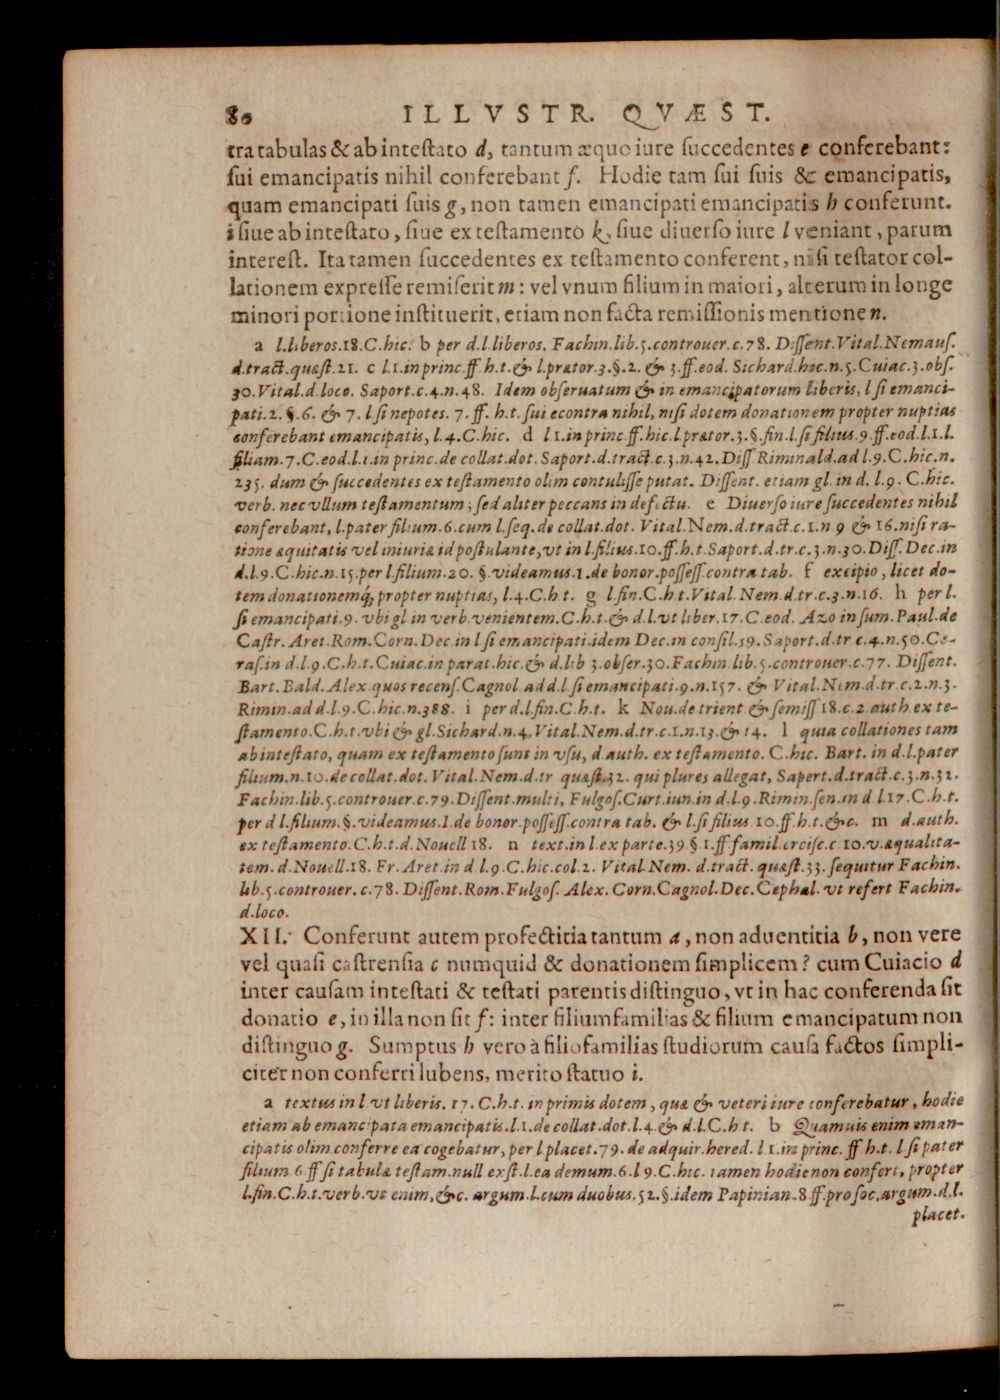 80 ILLVSTR. QVÆST.
tra tabulas & ab intestato d, tantum æquo iure succedentes e conferebant:
sui emancipatis nihil conferebant f. Hodie tam sui suis & emancipatis,
quam emancipati suis g, non tamen emancipati emancipatis h conferunt.
i siue ab intestato, siue ex testamento k, siue diuerso iure l veniant, parum
interest. Ita tamen succedentes ex testamento conferent, nisi testator col-
lationem expresse remiserit m: vel vnum filium in maiori, alterum in longe
minori portione instituerit, etiam non facta remissionis mentione n.
a l.liberos.18.C.hic. b per d.l liberos. Fachin.lib.5.controuer.c.78. Dissent.Vital.Nemaus.
d.tract.quæst.21. c l.1.in princ.ff.h.t.& l.prætor.3.§.2. & 3.ff.eod. Sichard.hic.n.5.Cuiac.3.obs.
30.Vital.d.loco. Saport.c.4.n.48. Idem obseruatum & in emancipatorum liberis, l si emanci-
pati.2.§.6. & 7. l si nepotes. 7. ff. h.t. sui econtra nihil, nisi dotem donationem propter nuptias
conferebant emancipatis, l.4.C.hic. d l 1.in princ.ff.hic.l.prætor.3.§.fin.l.si filius.9.ff.eod.l.1.l.
filiam.7.C.eod.l.1.in princ.de collat.dot. Saport.d.tract.c.3.n.42.Diss.Riminald.ad l.9.C.hic.n.
235. dum & succedentes ex testamento olim contulisse putat. Dissent. etiam gl. in d. l.9. C.hic.
verb. nec vllum testamentum; sed aliter peccans in defectu. e Diuerso iure succedentes nihil
conferebant, l.pater filium.6.cum l.seq.de collat.dot. Vital.Nem.d.tract.c.1.n 9 & 16.nisi ra-
tione æquitatis vel iniuria id postulante, vt in l.filius.10.ff.h.t.Saport.d.tr.c.3.n.30.Diss.Dec.in
d.l.9.C.hic.n.15.per l.filium.20. §.videamus.1.de bonor.possess.contra tab. f excipio, licet do-
tem donationemq́; propter nuptias, l.4.C.h t. g l.fin.C.h t.Vital.Nem.d.tr.c.3.n.16. h per l.
si emancipati.9. vbi gl in verb.venientem.C.h.t.& d.l.vt liber.17.C.eod. Azo in sum. Paul.de
Castr. Aret.Rom.Corn.Dec in l si emancipati.idem Dec.in consil.19.Saport.d.tr c.4.n.50.Ce-
ras.in d.l.9.C.h.t.Cuiac.in parat.hic.& d.lib 3.obser.30.Fachin lib.5.controuer.c.77. Dissent.
Bart.Bald.Alex quos recens.Cagnol ad d.l si emancipati.9.n.157. & Vital.Nem.d.tr.c.2.n.3.
Rimin.ad d l.9.C.hic.n.388. i per d.l.fin.C.h.t. k Nou.de trient & semiss 18.c.2 auth.ex te-
stamento.C.h.t.vbi & gl.Sichard.n.4.Vital.Nem.d.tr.c.1.n.13.& 14. l quia collationes tam
ab intestato, quam ex testamento sunt in vsu, d auth. ex testamento. C.hic. Bart. in d.l.pater
filium.n.10.de collat.dot. Vital.Nem.d.tr quæst.32. qui plures allegat, Sapert.d.tract.c.3.n.32.
Fachin.lib.5.controuer.c.79.Dissent.multi, Fulgos.Curt.iun.in d.l.9.Rimin.sen.in d l.17.C.h.t.
per d l.filium.§.videamus.1.de bonor.possess.contra tab. & l.si filius 10.ff.h.t.&c. m d.auth.
ex testamento.C.h.t.d.Nouell 18. n text.in l.ex parte.39 §.1.ff.famil.ercisc.c 10.v.æqualita-
tem. d.Nouell.18. Fr. Aret.in d l.9.C.hic.col.2. Vital.Nem. d.tract. quæst.33. sequitur Fachin.
lib.5.controuer. c.78. Dissent.Rom.Fulgos. Alex. Corn.Cagnol.Dec.Cephal. vt refert Fachin.
d.loco.
XII. Conferunt autem profectitia tantum a, non aduentitia b, non vere
vel quasi castrensia c numquid & donationem simplicem? cum Cuiacio d
inter causam intestati & testati parentis distinguo, vt in hac conferenda sit
donatio e, in illa non sit f: inter filiumfamilias & filium emancipatum non
distinguo g. Sumptus h vero à filiofamilias studiorum causa factos simpli-
citer non conferri lubens, merito statuo i.
a textus in l vt liberis. 17. C.h.t. in primis dotem, quæ & veteri iure conferebatur, hodie
etiam ab emancipata emancipatis.l.1.de collat.dot.l.4.& d.l.C.h t. b Quamuis enim eman-
cipatis olim conferre ea cogebatur, per l placet.79. de adquir.hered. l 1.in princ. ff h.t. l si pater
filium 6.ff si tabulæ testam.null exst.l.ea demum.6.l 9.C.hic. tamen hodie non confert, propter
l.fin.C.h.t.verb.vt enim, &c. argum.l.cum duobus.52.§.idem Papinian.8.ff.pro soc.argum.d.l.
placet.